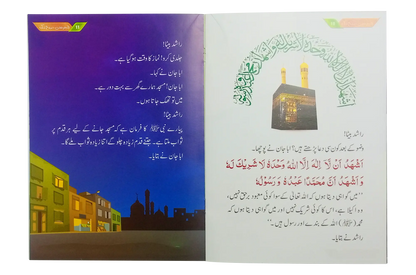 راشد بیٹا!
وضو کے بعد کون سی دعا پڑھتے ہیں؟ ابا جان نے پوچھا۔
اَشْهَدُ اَنْ لَّا اِلٰهَ اِلَّا اللّٰهُ وَحْدَهٗ لَا شَرِيْكَ لَهٗ
وَاَشْهَدُ اَنَّ مُحَمَّدًا عَبْدُهٗ وَرَسُوْلُهٗ
"میں گواہی دیتا ہوں کہ اللہ تعالیٰ کے سوا کوئی معبود برحق نہیں،
وہ اکیلا ہے، اس کا کوئی شریک نہیں اور میں گواہی دیتا ہوں کہ
محمد (ﷺ) اللہ کے بندے اور رسول ہیں۔"
راشد نے بتایا۔
راشد بیٹا!
جلدی کرو! نماز کا وقت ہو گیا ہے۔
ابا جان نے کہا۔
ابا جان! مسجد ہمارے گھر سے بہت دور ہے۔
میں تو تھک جاتا ہوں۔
پیارے نبی ﷺ کا فرمان ہے کہ مسجد جانے کے لیے ہر قدم پر
ثواب ملتا ہے۔ جتنے قدم زیادہ چلو گے اتنا زیادہ ثواب ملے گا۔
ابا جان نے بتایا۔